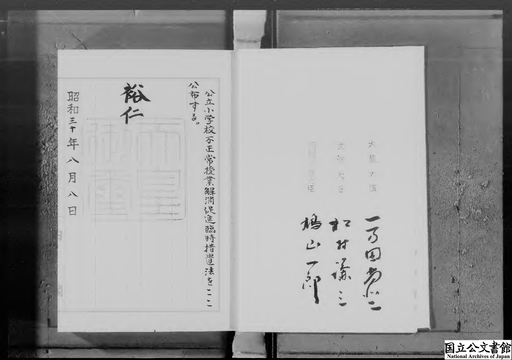 公立小学校不正常授業解消促進臨時措置法をここに
公布する。
裕仁
昭和三十年八月八日
大蔵大臣 一万田尚登
文部大臣 松村謙三
鳩山一郎
国立公文書館
National Archives of Japan